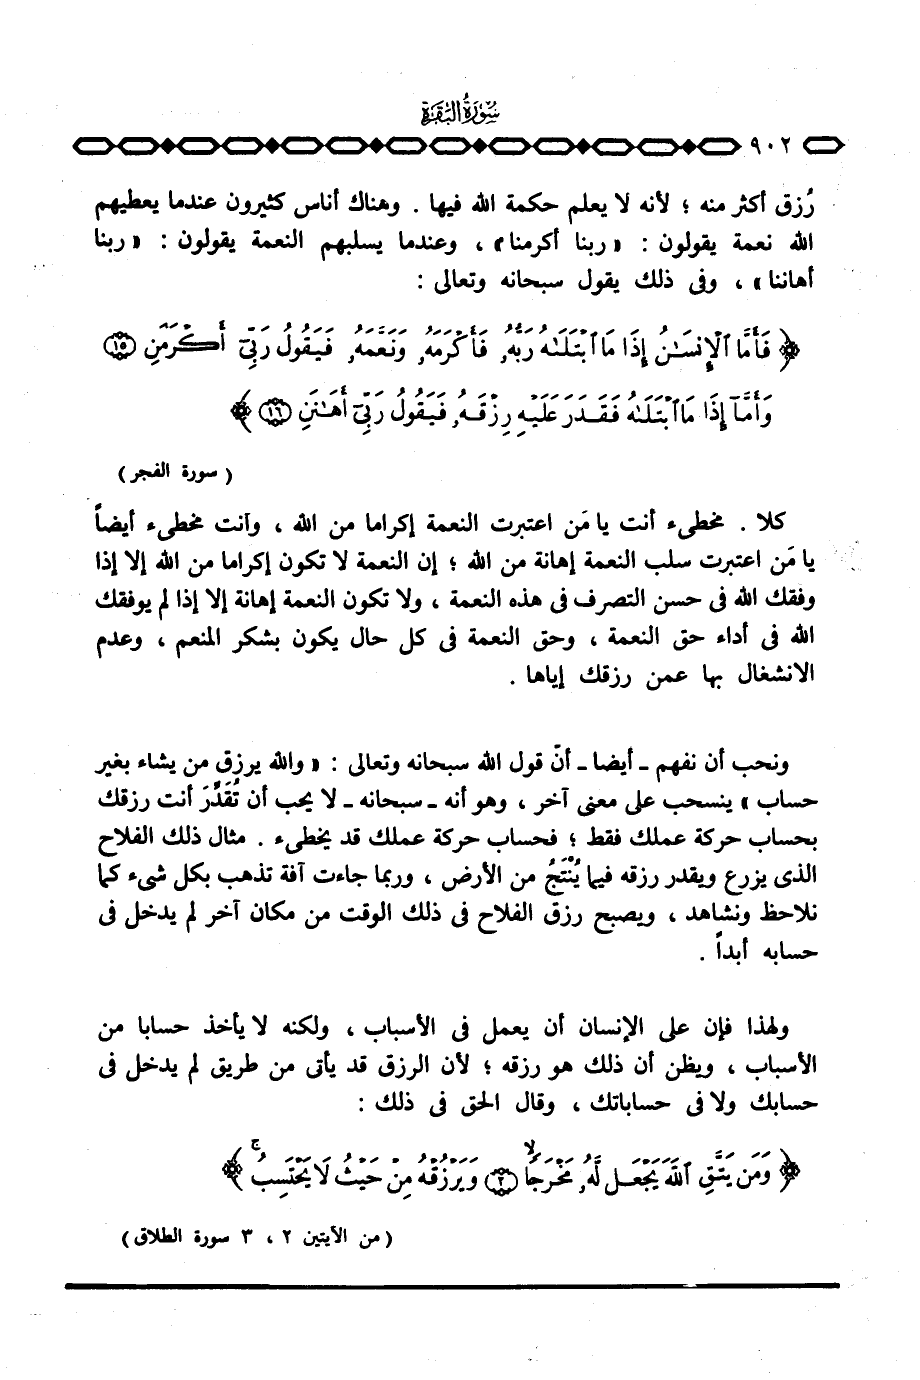 سُورَةُ البَقَرَة
٩٠٢
رُزق أكثر منه ؛ لأنه لا يعلم حكمة الله فيها . وهناك أناس كثيرون عندما يعطيهم
الله نعمة يقولون : « ربنا أكرمنا » ، وعندما يسلبهم النعمة يقولون : « ربنا
أهاننا » ، وفى ذلك يقول سبحانه وتعالى :
﴿ فَأَمَّا ٱلْإِنسَٰنُ إِذَا مَا ٱبْتَلَىٰهُ رَبُّهُۥ فَأَكْرَمَهُۥ وَنَعَّمَهُۥ فَيَقُولُ رَبِّىٓ أَكْرَمَنِ ١٥
وَأَمَّآ إِذَا مَا ٱبْتَلَىٰهُ فَقَدَرَ عَلَيْهِ رِزْقَهُۥ فَيَقُولُ رَبِّىٓ أَهَٰنَنِ ١٦ ﴾
( سورة الفجر )
كلا . مخطىء أنت يا مَن اعتبرت النعمة إكراما من الله ، وأنت مخطىء أيضاً
يا مَن اعتبرت سلب النعمة إهانة من الله ؛ إن النعمة لا تكون إكراما من الله إلا إذا
وفقك الله فى حسن التصرف فى هذه النعمة ، ولا تكون النعمة إهانة إلا إذا لم يوفقك
الله فى أداء حق النعمة ، وحق النعمة فى كل حال يكون بشكر المنعم ، وعدم
الانشغال بها عمن رزقك إياها .
ونحب أن نفهم ـ أيضا ـ أنّ قول الله سبحانه وتعالى : « والله يرزق من يشاء بغير
حساب » ينسحب على معنى آخر ، وهو أنه ـ سبحانه ـ لا يحب أن تُقَدِّرَ أنت رزقك
بحساب حركة عملك فقط ؛ فحساب حركة عملك قد يخطىء . مثال ذلك الفلاح
الذى يزرع ويقدر رزقه فيما يُنْتَجُ من الأرض ، وربما جاءت آفة تذهب بكل شىء كما
نلاحظ ونشاهد ، ويصبح رزق الفلاح فى ذلك الوقت من مكان آخر لم يدخل فى
حسابه أبداً .
ولهذا فإن على الإنسان أن يعمل فى الأسباب ، ولكنه لا يأخذ حسابا من
الأسباب ، ويظن أن ذلك هو رزقه ؛ لأن الرزق قد يأتى من طريق لم يدخل فى
حسابك ولا فى حساباتك ، وقال الحق فى ذلك :
﴿ وَمَن يَتَّقِ ٱللَّهَ يَجْعَل لَّهُۥ مَخْرَجًاۙ ٢ وَيَرْزُقْهُ مِنْ حَيْثُ لَا يَحْتَسِبُۚ ﴾
( من الآيتين ٢ ، ٣ سورة الطلاق )